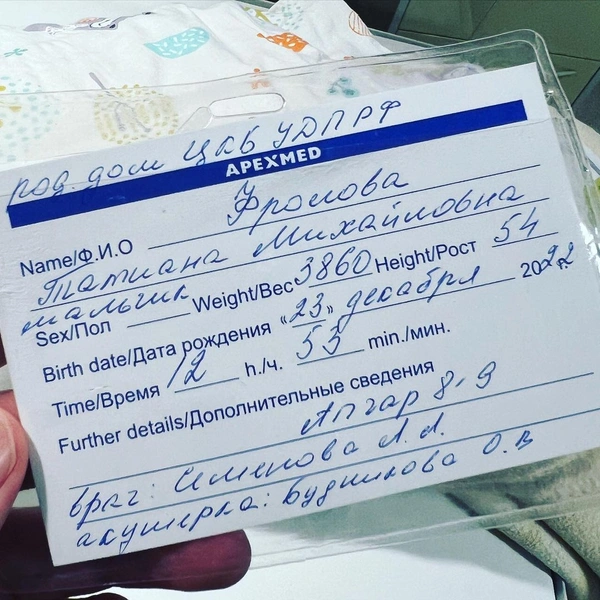 род. дом ЦКБ УДП РФ
APEXMED
Name/Ф.И.О Фролова
Татиана Михайловна
мальчик
Sex/Пол Weight/Вес 3860 Height/Рост 54
Birth date/Дата рождения «23» декабря 2022 г.
Time/Время 12 h./ч. 53 min./мин.
Further details/Дополнительные сведения
Апгар 8-9
врач: Семенова Л. Л.
акушерка: Будникова О. В